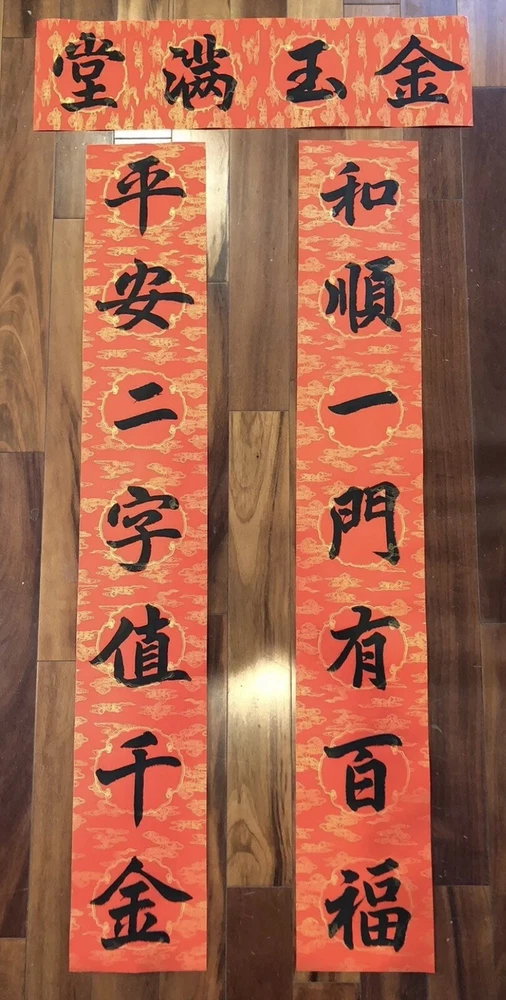 金玉满堂
和順一門有百福
平安二字值千金